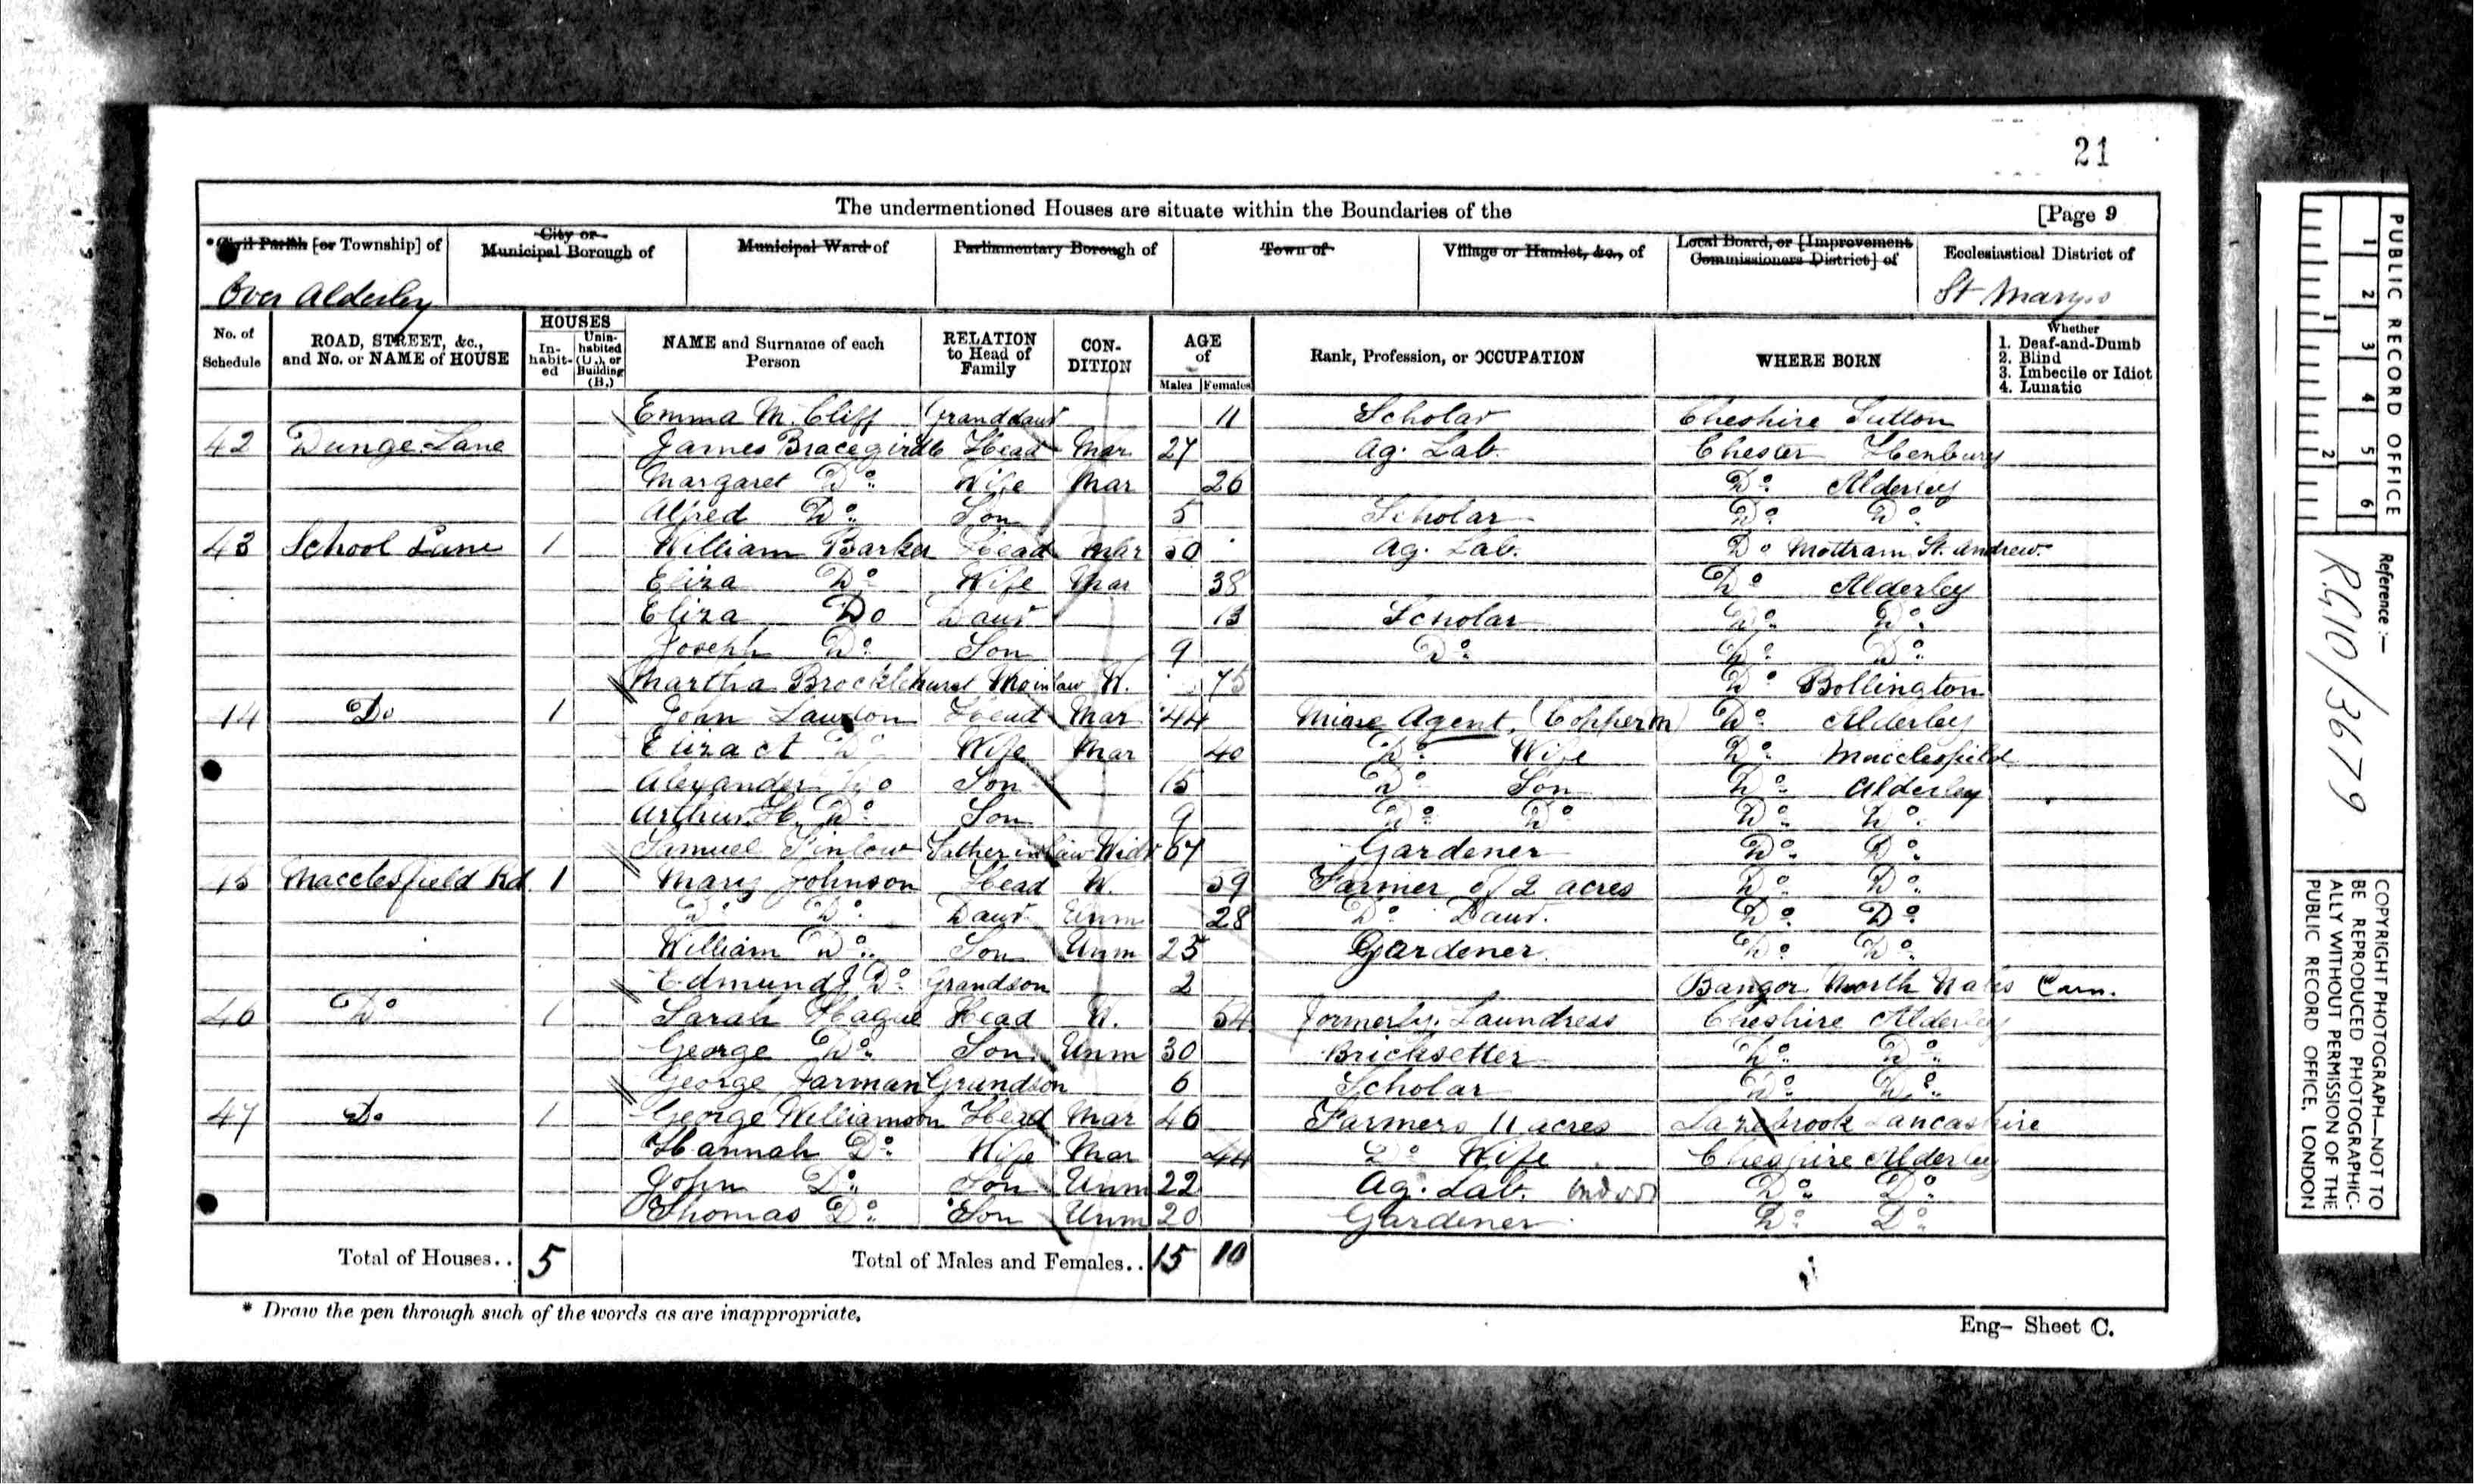 21
The undermentioned Houses are situate within the Boundaries of the [Page 9
*Civil Parish [or Township] of City or Municipal Borough of Municipal Ward of Parliamentary Borough of Town of Village or Hamlet, &c., of Local Board, or [Improvement Commissioners District] of Ecclesiastical District of
Over Alderley St Marys
No. of Schedule ROAD, STREET, &c., and No. or NAME of HOUSE HOUSES In-habit-ed Unin-habited (U.), or Building (B.) NAME and Surname of each Person RELATION to Head of Family CON-DITION AGE of Males Females Rank, Profession, or OCCUPATION WHERE BORN Whether 1. Deaf-and-Dumb 2. Blind 3. Imbecile or Idiot 4. Lunatic
Emma M. Cliff Granddaur 11 Scholar Cheshire Sutton
42 Dunge Lane James Bracegirdle Head Mar 27 Ag. Lab. Chester Henbury
Margaret Do Wife Mar 26 Do Alderley
Alfred Do Son 5 Scholar Do Do
43 School Lane 1 William Barker Head Mar 50 Ag. Lab. Do Mottram St. Andrew
Eliza Do Wife Mar 38 Do Alderley
Eliza Do Daur 13 Scholar Do Do
Joseph Do Son 9 Do Do Do
Martha Brocklehurst Mo in law W. 75 Do Bollington
44 Do 1 John Lawton Head Mar 44 Mine Agent (Copper m) Do Alderley
Eliza A Do Wife Mar 40 Do Wife Do Macclesfield
Alexander Do Son 15 Do Son Do Alderley
Arthur H. Do Son 9 Do Do Do Do
Samuel Father in law Widr 67 Gardener Do Do
45 Macclesfield Rd. 1 Mary Johnson Head W. 59 Farmer of 2 acres Do Do
Do Do Daur Unm 28 Do Daur. Do Do
William Do Son Unm 25 Gardener Do Do
Edmund J Do Grandson 2 Bangor North Wales Carn.
46 Do 1 Sarah Hague Head W. 54 Formerly Laundress Cheshire Alderley
George Do Son Unm 30 Bricksetter Do Do
George Jarman Grandson 6 Scholar Do Do
47 Do 1 George Williamson Head Mar 46 Farmers 11 acres Lancashire
Hannah Do Wife Mar 44 Do Wife Cheshire Alderley
John Do Son Unm 22 Ag. Lab. indoor Do Do
Thomas Do Son Unm 20 Gardener Do Do
Total of Houses.. 5 Total of Males and Females.. 15 10
* Draw the pen through such of the words as are inappropriate.
Eng— Sheet C.
PUBLIC RECORD OFFICE
1 2 3 4 5 6
1 2
Reference :—
R.G.10/3679
COPYRIGHT PHOTOGRAPH—NOT TO
BE REPRODUCED PHOTOGRAPHIC-
ALLY WITHOUT PERMISSION OF THE
PUBLIC RECORD OFFICE, LONDON